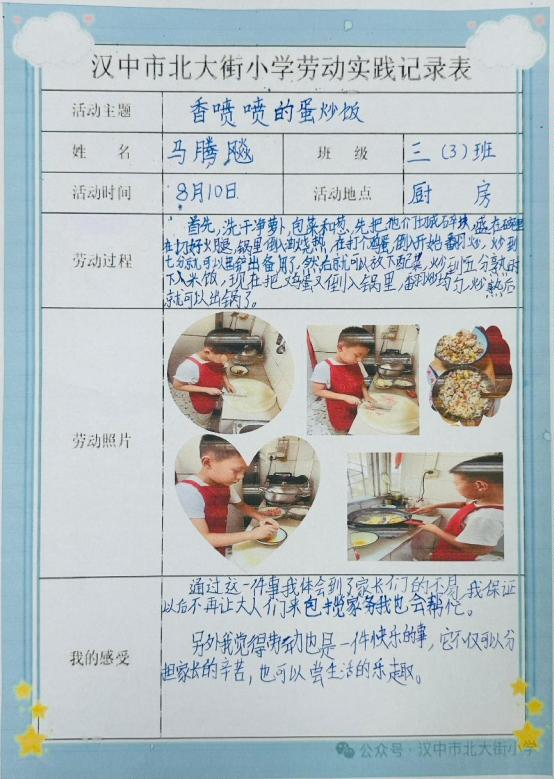 汉中市北大街小学劳动实践记录表
活动主题 香喷喷的蛋炒饭
姓 名 马腾飚 班 级 三（3）班
活动时间 8月10日 活动地点 厨 房
劳动过程
首先,洗干净萝卜,包菜和葱,先把他们切成碎块,盛在碗里
在切好火腿,锅里倒油烧热,在打个鸡蛋,倒入开始翻炒,炒到
七分就可以盛出备用了。然后就可以放下配菜,炒到五分熟时
下入米饭,现在把鸡蛋又倒入锅里,翻炒均匀,炒熟后
就可以出锅了。
劳动照片
我的感受
通过这一件事我体会到了家长们的不易,我保证
以后不再让大人们来包揽家务我也会帮忙。
另外我觉得劳动也是一件快乐的事,它不仅可以分
担家长的辛苦,也可以尝生活的乐趣。
公众号·汉中市北大街小学